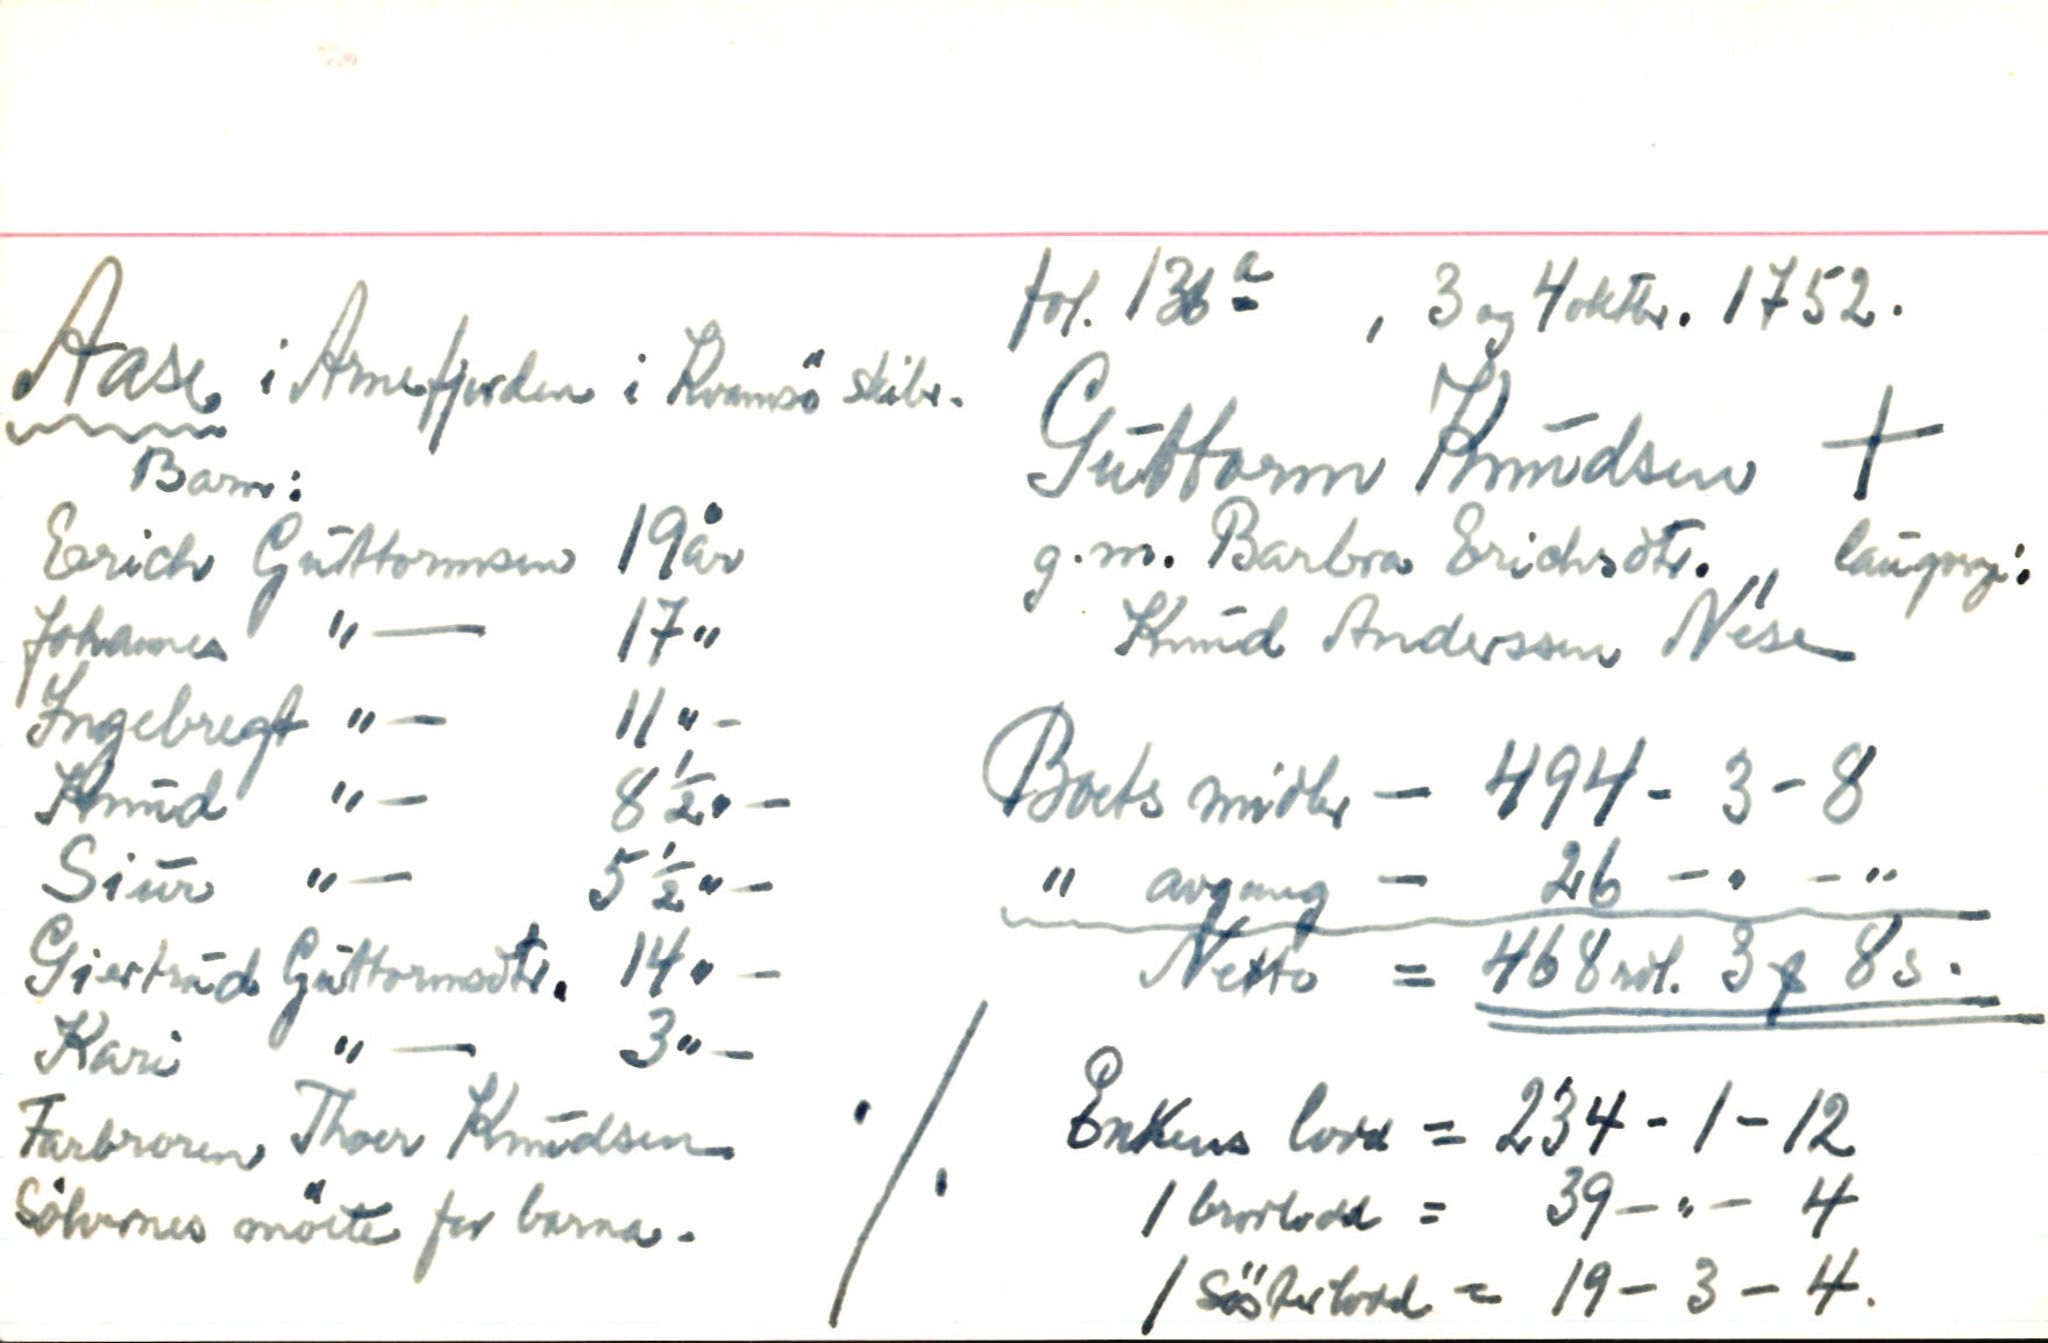 fol. 136a, 3 og 4 oktbr. 1752.
Aase i Arnefjorden i Kvamsö skibr.
Guttorm Knudsen +
g.m. Barbra Erichsdtr., laugvrg:
Knud Anderssen Nese
Barn:
Erich Guttormsen 19 år
Johannes " — 17 "
Ingebregt " — 11 " -
Knud " — 8 1/2 " -
Siur " — 5 1/2 " -
Giertrud Guttormsdtr. 14 " -
Kari " — 3 " -
Farbroren Thoer Knudsen
Sølvornes möcte for barna.
Boets midler — 494 - 3 - 8
" avgang — 26 - " - "
Netto = 468 rdl. 3 ƒ 8 s.
Enkens lodd = 234 - 1 - 12
1 brorlodd = 39 - " - 4
1 Sösterlodd = 19 - 3 - 4.